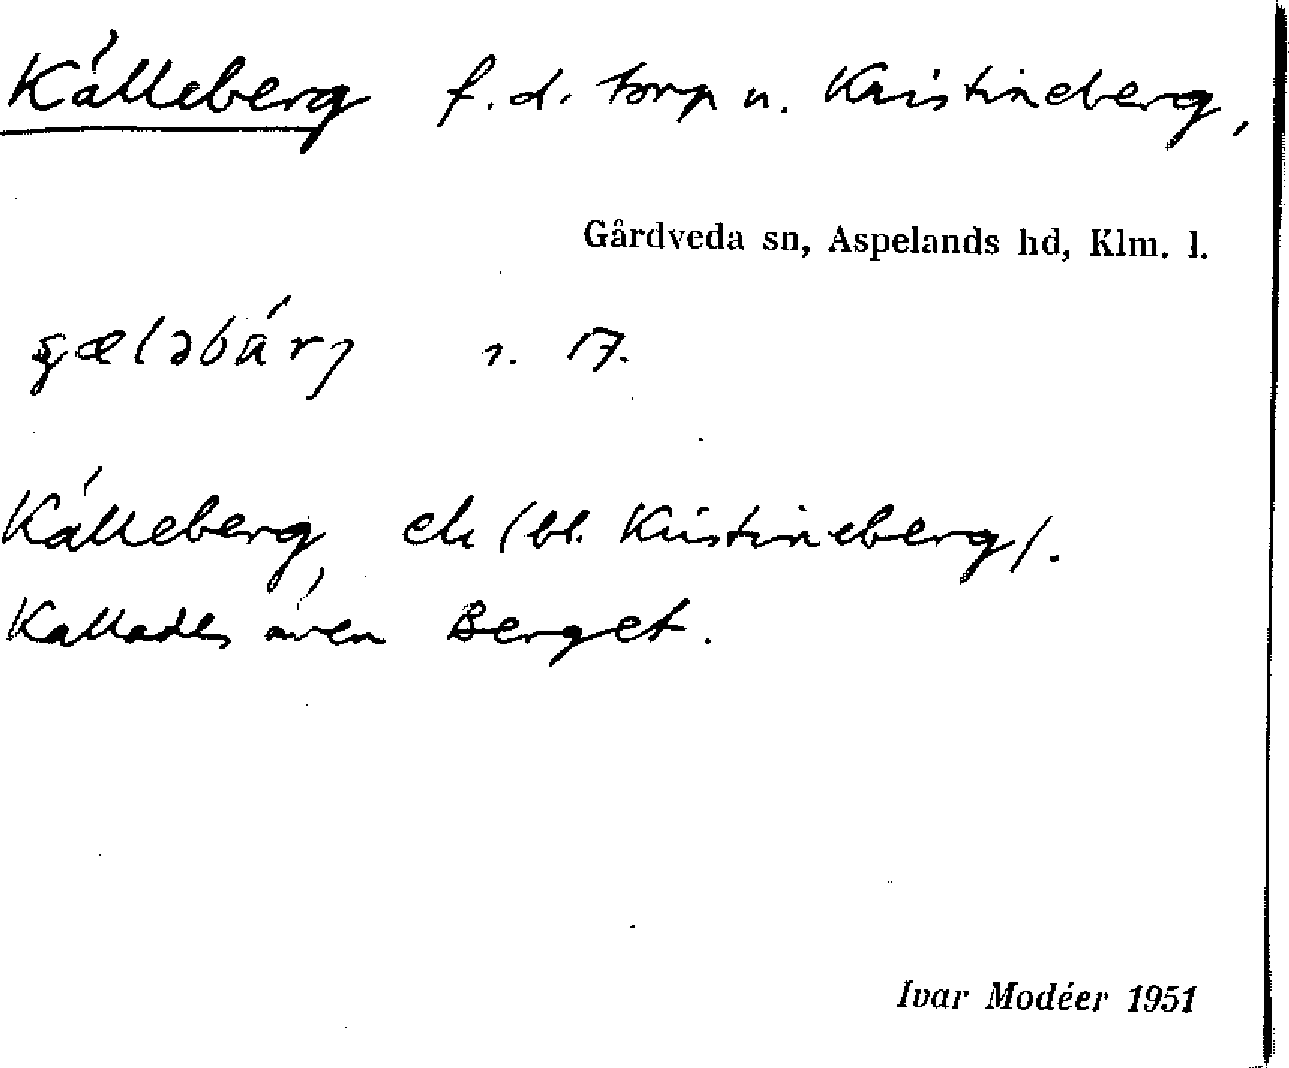 Källeberg f.d. torp u. Kristineberg,
Gårdveda sn, Aspelands hd, Klm. l.
s. 17.
Källeberg, ek (bl. Kristineberg).
Kallades även Berget.
Ivar Modéer 1951